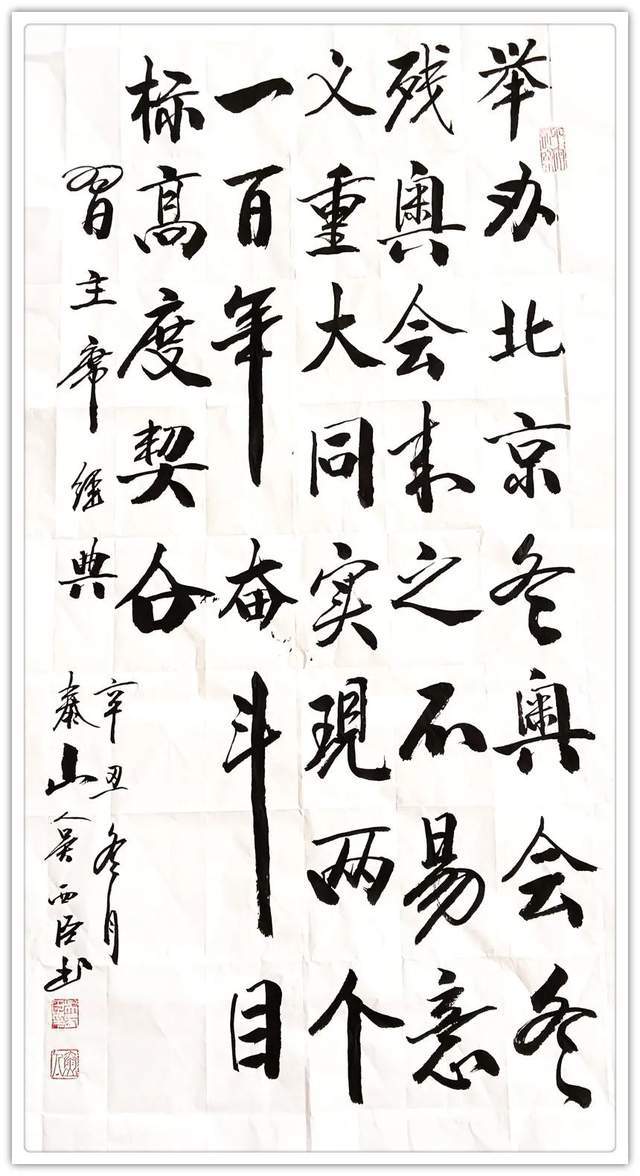 举办北京冬奥会冬
残奥会来之不易意
义重大同实現两个
一百年奋斗目
标高度契合
習主席经典
辛丑冬月
泰山人吴西臣书